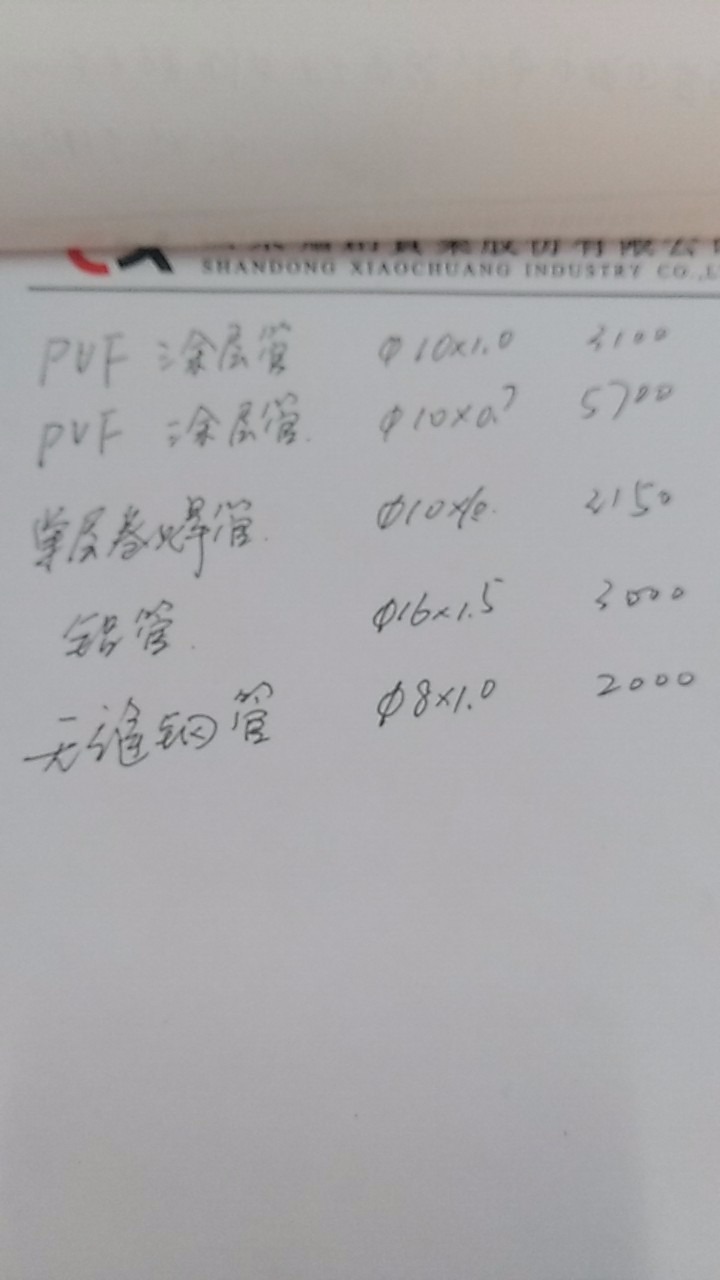 SHANDONG XIAOCHUANG INDUSTRY CO.,L
PVF 涂层管 Φ10×1.0 3100
PVF 涂层管. Φ10×0.7 5700
单层卷焊管. 2150
铝管. Φ16×1.5 3000
无缝钢管 Φ8×1.0 2000